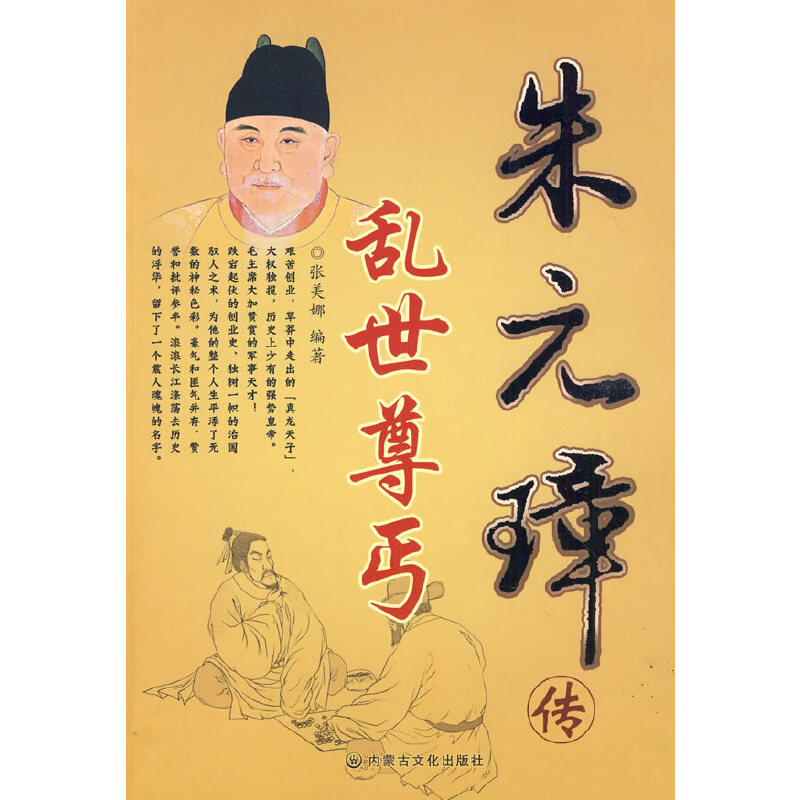 朱元璋
传
乱世尊丐
◎张美娜 编著
艰苦创业，草莽中走出的「真龙天子」，
大权独揽，历史上少有的强势皇帝。
毛主席大加赞赏的军事天才！
跌宕起伏的创业史、独树一帜的治国
驭人之术，为他的整个人生平添了无
数的神秘色彩。豪气和匪气并存，赞
誉和批评参半。滚滚长江涤荡去历史
的浮华，留下了一个震人魂魄的名字。
内蒙古文化出版社